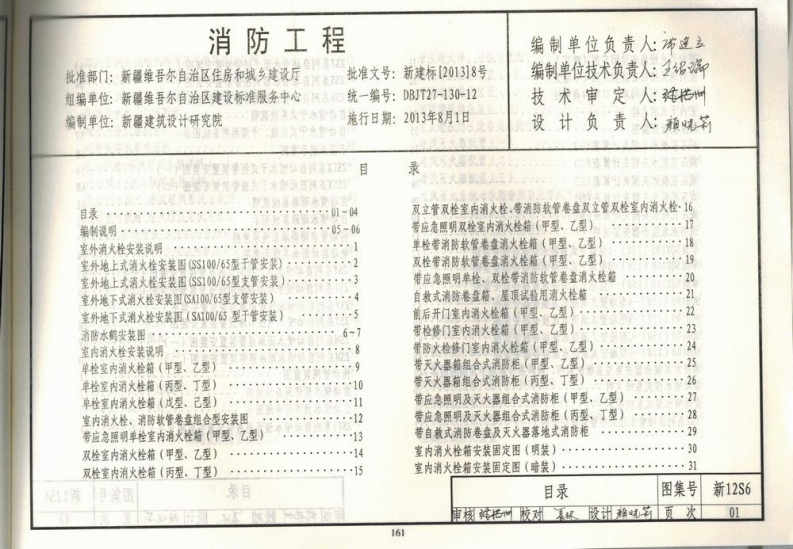 消防工程
批准部门：新疆维吾尔自治区住房和城乡建设厅 批准文号：新建标[2013]8号
组编单位：新疆维吾尔自治区建设标准服务中心 统一编号：DBJT27-130-12
编制单位：新疆建筑设计研究院 施行日期：2013年8月1日
编制单位负责人：
编制单位技术负责人：
技术审定人：
设计负责人：
目 录
目录 01-04
编制说明 05-06
室外消火栓安装说明 1
室外地上式消火栓安装图(SS100/65型干管安装) 2
室外地上式消火栓安装图(SS100/65型支管安装) 3
室外地下式消火栓安装图(SA100/65型支管安装) 4
室外地下式消火栓安装图(SA100/65型干管安装) 5
消防水鹤安装图 6-7
室内消火栓安装说明 8
单栓室内消火栓箱(甲型、乙型) 9
单栓室内消火栓箱(丙型、丁型) 10
单栓室内消火栓箱(戊型、乙型) 11
室内消火栓、消防软管卷盘组合型安装图 12
带应急照明单栓室内消火栓箱(甲型、乙型) 13
双栓室内消火栓箱(甲型、乙型) 14
双栓室内消火栓箱(丙型、丁型) 15
双立管双栓室内消火栓、带消防软管卷盘双立管双栓室内消火栓 16
带应急照明双栓室内消火栓箱(甲型、乙型) 17
单栓带消防软管卷盘消火栓箱(甲型、乙型) 18
双栓带消防软管卷盘消火栓箱(甲型、乙型) 19
带应急照明单栓、双栓带消防软管卷盘消火栓箱 20
自救式消防卷盘箱、屋顶试验用消火栓箱 21
前后开门室内消火栓箱(甲型、乙型) 22
带检修门室内消火栓箱(甲型、乙型) 23
带防火检修门室内消火栓箱(甲型、乙型) 24
带灭火器箱组合式消防柜(甲型、乙型) 25
带灭火器箱组合式消防柜(丙型、丁型) 26
带应急照明及灭火器组合式消防柜(甲型、乙型) 27
带应急照明及灭火器组合式消防柜(丙型、丁型) 28
带自救式消防卷盘及灭火器落地式消防柜 29
室内消火栓箱安装固定图(明装) 30
室内消火栓箱安装固定图(暗装) 31
目录 图集号 新12S6
审核 校对 设计 页次 01
161